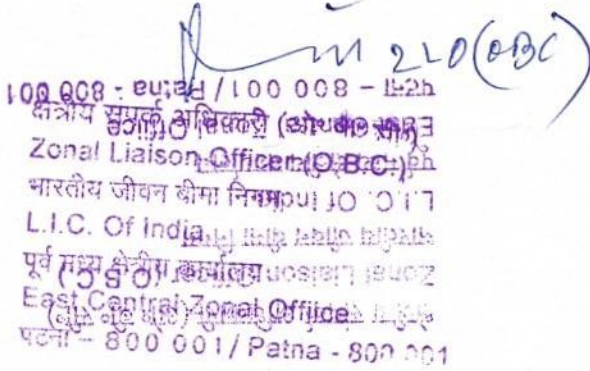 ZLO(OBC)
क्षेत्रीय सम्पर्क अधिकारी
Zonal Liaison Officer (O.B.C.)
भारतीय जीवन बीमा निगम
L.I.C. Of India
पूर्व मध्य क्षेत्रीय कार्यालय
East Central Zonal Office
पटना - 800 001 / Patna - 800 001